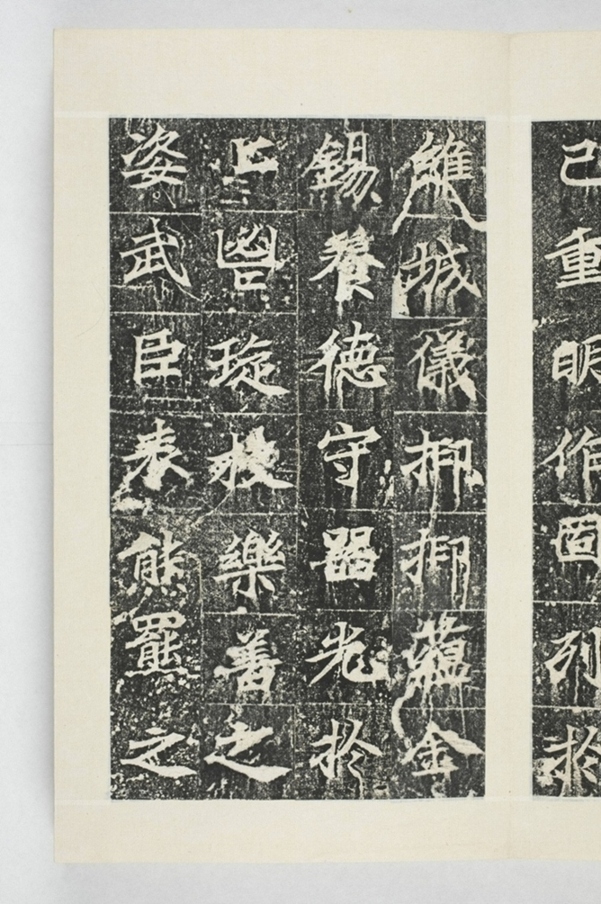 己重明作固列於
維城儀抑抑蘊金
錫養德守器光於
上琁枝樂善之
姿武臣表熊羆之